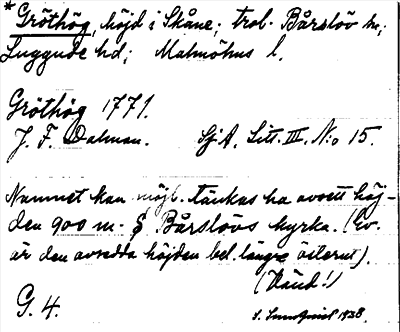 * Gröthög, höjd i Skåne; trol. Bårslöv sn;
Luggude hd; Malmöhus l.
Gröthög 1771.
J. F. Dalman. SjA. Litt. III. N:o 15.
Namnet kan möjl. tänkas ha avsett höj-
den 900 m. S Bårslövs kyrka. (Ev.
är den avsedda höjden bel. längre österut).
(Känd!)
G. 4.
1938.